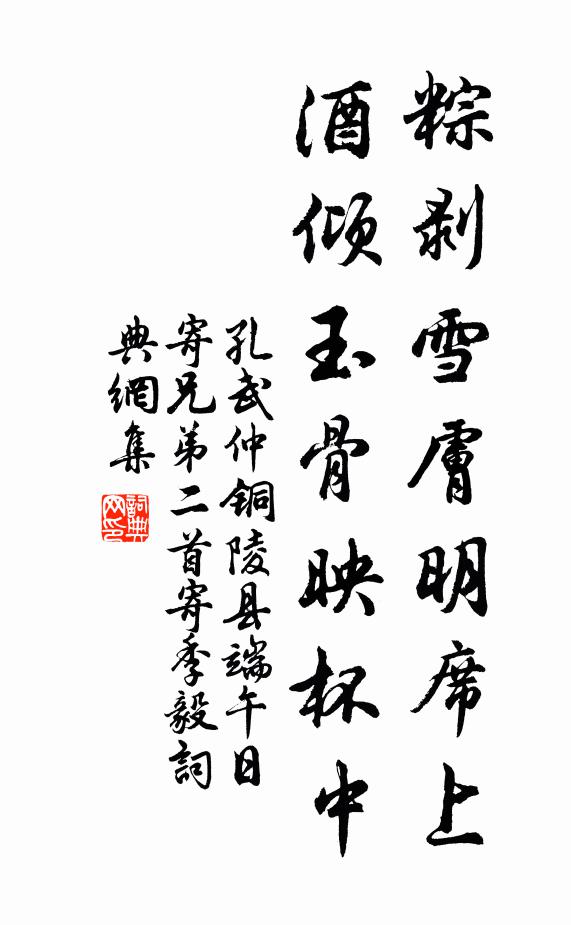 粽剥雪膚明席上
酒倾玉骨映杯中
孔武仲铜陵县端午日
寄兄弟二首寄季毅詞
典網集
詞典网印